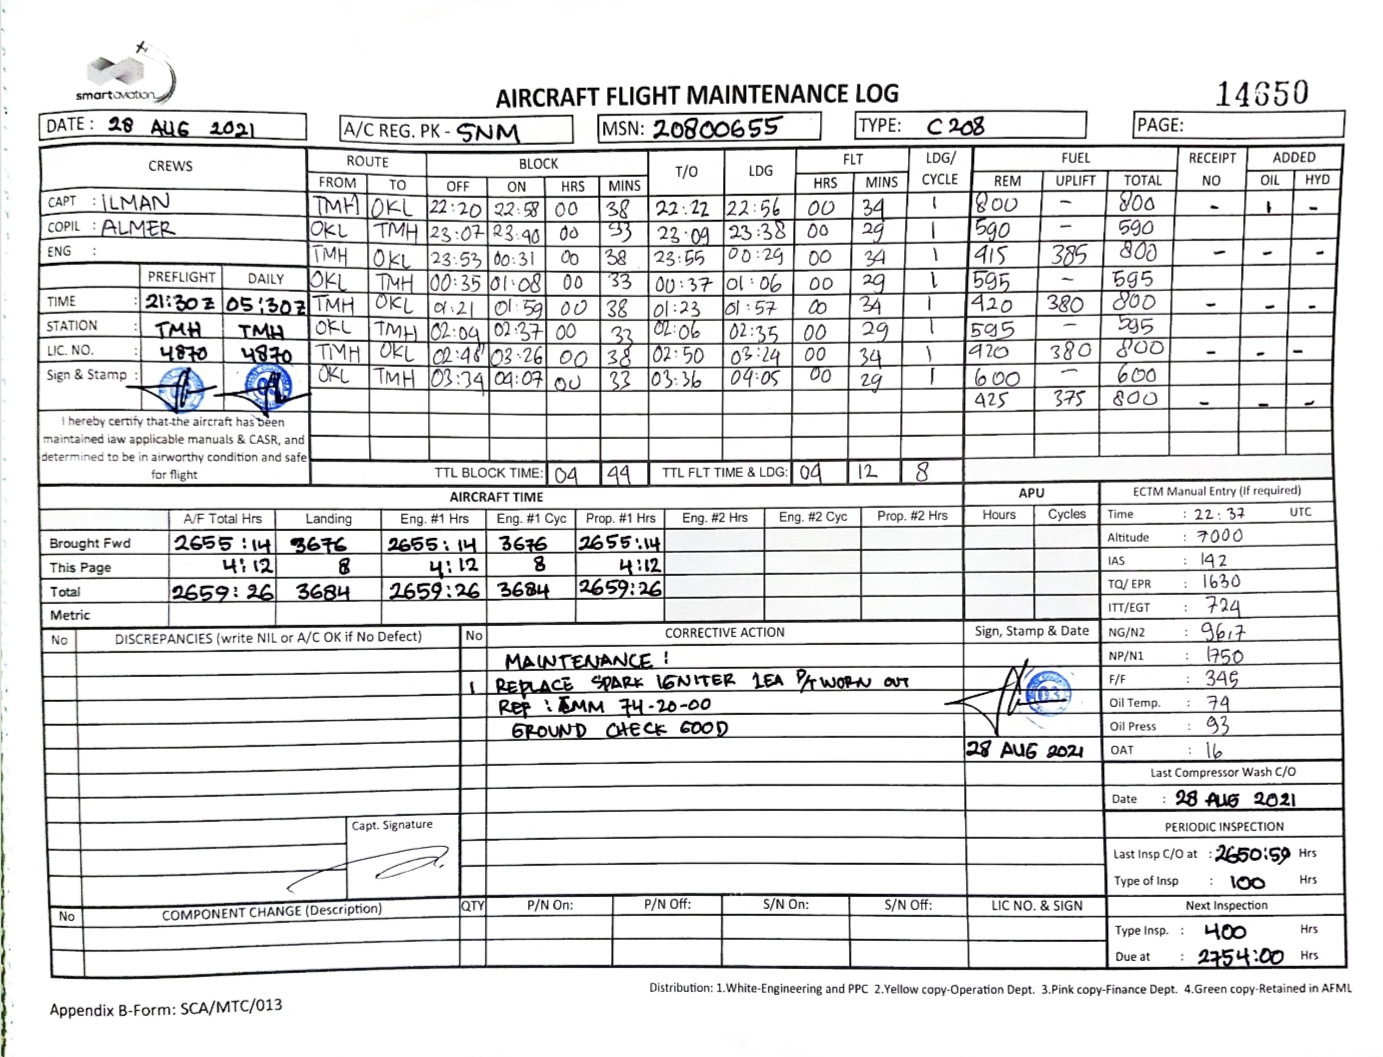 smartaviation
AIRCRAFT FLIGHT MAINTENANCE LOG
14650
DATE : 28 AUG 2021
A/C REG. PK - SNM
MSN: 20800655
TYPE: C 208
PAGE:
CREWS ROUTE BLOCK T/O LDG FLT LDG/ CYCLE FUEL RECEIPT NO ADDED
FROM TO OFF ON HRS MINS HRS MINS REM UPLIFT TOTAL OIL HYD
CAPT : ILMAN TMH OKL 22:20 22:58 00 38 22:22 22:56 00 34 1 800 - 800 - 1 -
COPIL : ALMER OKL TMH 23:07 23:40 00 33 23:09 23:38 00 29 1 590 - 590
ENG : TMH OKL 23:53 00:31 00 38 23:55 00:29 00 34 1 415 385 800 - - -
PREFLIGHT DAILY OKL TMH 00:35 01:08 00 33 00:37 01:06 00 29 1 595 - 595
TIME : 21:30 Z 05:30Z TMH OKL 01:21 01:59 00 38 01:23 01:57 00 34 1 420 380 800 - - -
STATION : TMH TMH OKL TMH 02:04 02:37 00 33 02:06 02:35 00 29 1 595 - 595
LIC. NO. : 4870 4870 TMH OKL 02:48 03:26 00 38 02:50 03:24 00 34 1 420 380 800 - - -
Sign & Stamp : OKL TMH 03:34 04:07 00 33 03:36 04:05 00 29 1 600 - 600
425 375 800 - - -
I hereby certify that the aircraft has been
maintained iaw applicable manuals & CASR, and
determined to be in airworthy condition and safe
for flight
TTL BLOCK TIME: 04 44 TTL FLT TIME & LDG: 04 12 8
AIRCRAFT TIME APU
A/F Total Hrs Landing Eng. #1 Hrs Eng. #1 Cyc Prop. #1 Hrs Eng. #2 Hrs Eng. #2 Cyc Prop. #2 Hrs Hours Cycles
Brought Fwd 2655:14 3676 2655:14 3676 2655:14
This Page 4:12 8 4:12 8 4:12
Total 2659:26 3684 2659:26 3684 2659:26
Metric
ECTM Manual Entry (If required)
Time : 22:37 UTC
Altitude : 7000
IAS : 142
TQ/ EPR : 1630
ITT/EGT : 724
NG/N2 : 96,7
NP/N1 : 1750
F/F : 345
Oil Temp. : 74
Oil Press : 93
OAT : 16
Last Compressor Wash C/O
Date : 28 AUG 2021
PERIODIC INSPECTION
Last Insp C/O at : 2650:59 Hrs
Type of Insp : 100 Hrs
Next Inspection
Type Insp. : 400 Hrs
Due at : 2754:00 Hrs
No DISCREPANCIES (write NIL or A/C OK if No Defect) No CORRECTIVE ACTION Sign, Stamp & Date
MAINTENANCE :
1 REPLACE SPARK IGNITER 1EA P/T WORN OUT
REF : EMM 74-20-00
GROUND CHECK GOOD
28 AUG 2021
Capt. Signature
No COMPONENT CHANGE (Description) QTY P/N On: P/N Off: S/N On: S/N Off: LIC NO. & SIGN
Distribution: 1.White-Engineering and PPC 2.Yellow copy-Operation Dept. 3.Pink copy-Finance Dept. 4.Green copy-Retained in AFML
Appendix B-Form: SCA/MTC/013